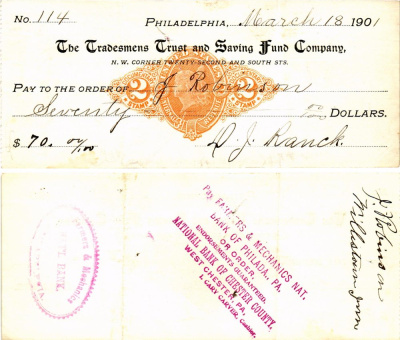 No. 114 Philadelphia, March 18 1901
The Tradesmens Trust and Saving Fund Company,
N. W. CORNER TWENTY-SECOND AND SOUTH STS.
PAY TO THE ORDER OF J Robinson
Seventy 00/100 DOLLARS.
$ 70. 00/100 D. J. Ranck.
2 2
STAMP
Pay FARMERS & MECHANICS NAT.
BANK OF PHILADA, PA.
OR ORDER.
ENDORSEMENTS GUARANTEED.
NATIONAL BANK OF CHESTER COUNTY,
WEST CHESTER, PA.
CARVER, Cashier.
& Mechanics
BANK.
J. Robinson